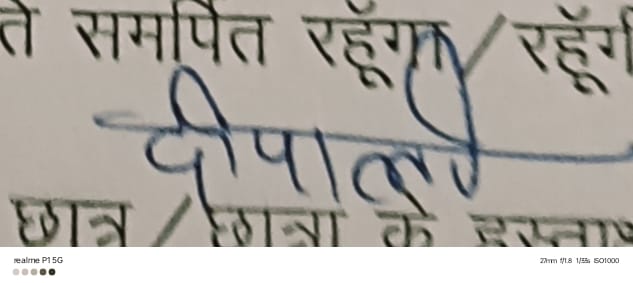 ते समर्पित रहूँगा / रहूँगी
दीपाली
छात्र / छात्रा के हस्ताक्षर
realme P1 5G
27mm f/1.8 1/33s ISO1000